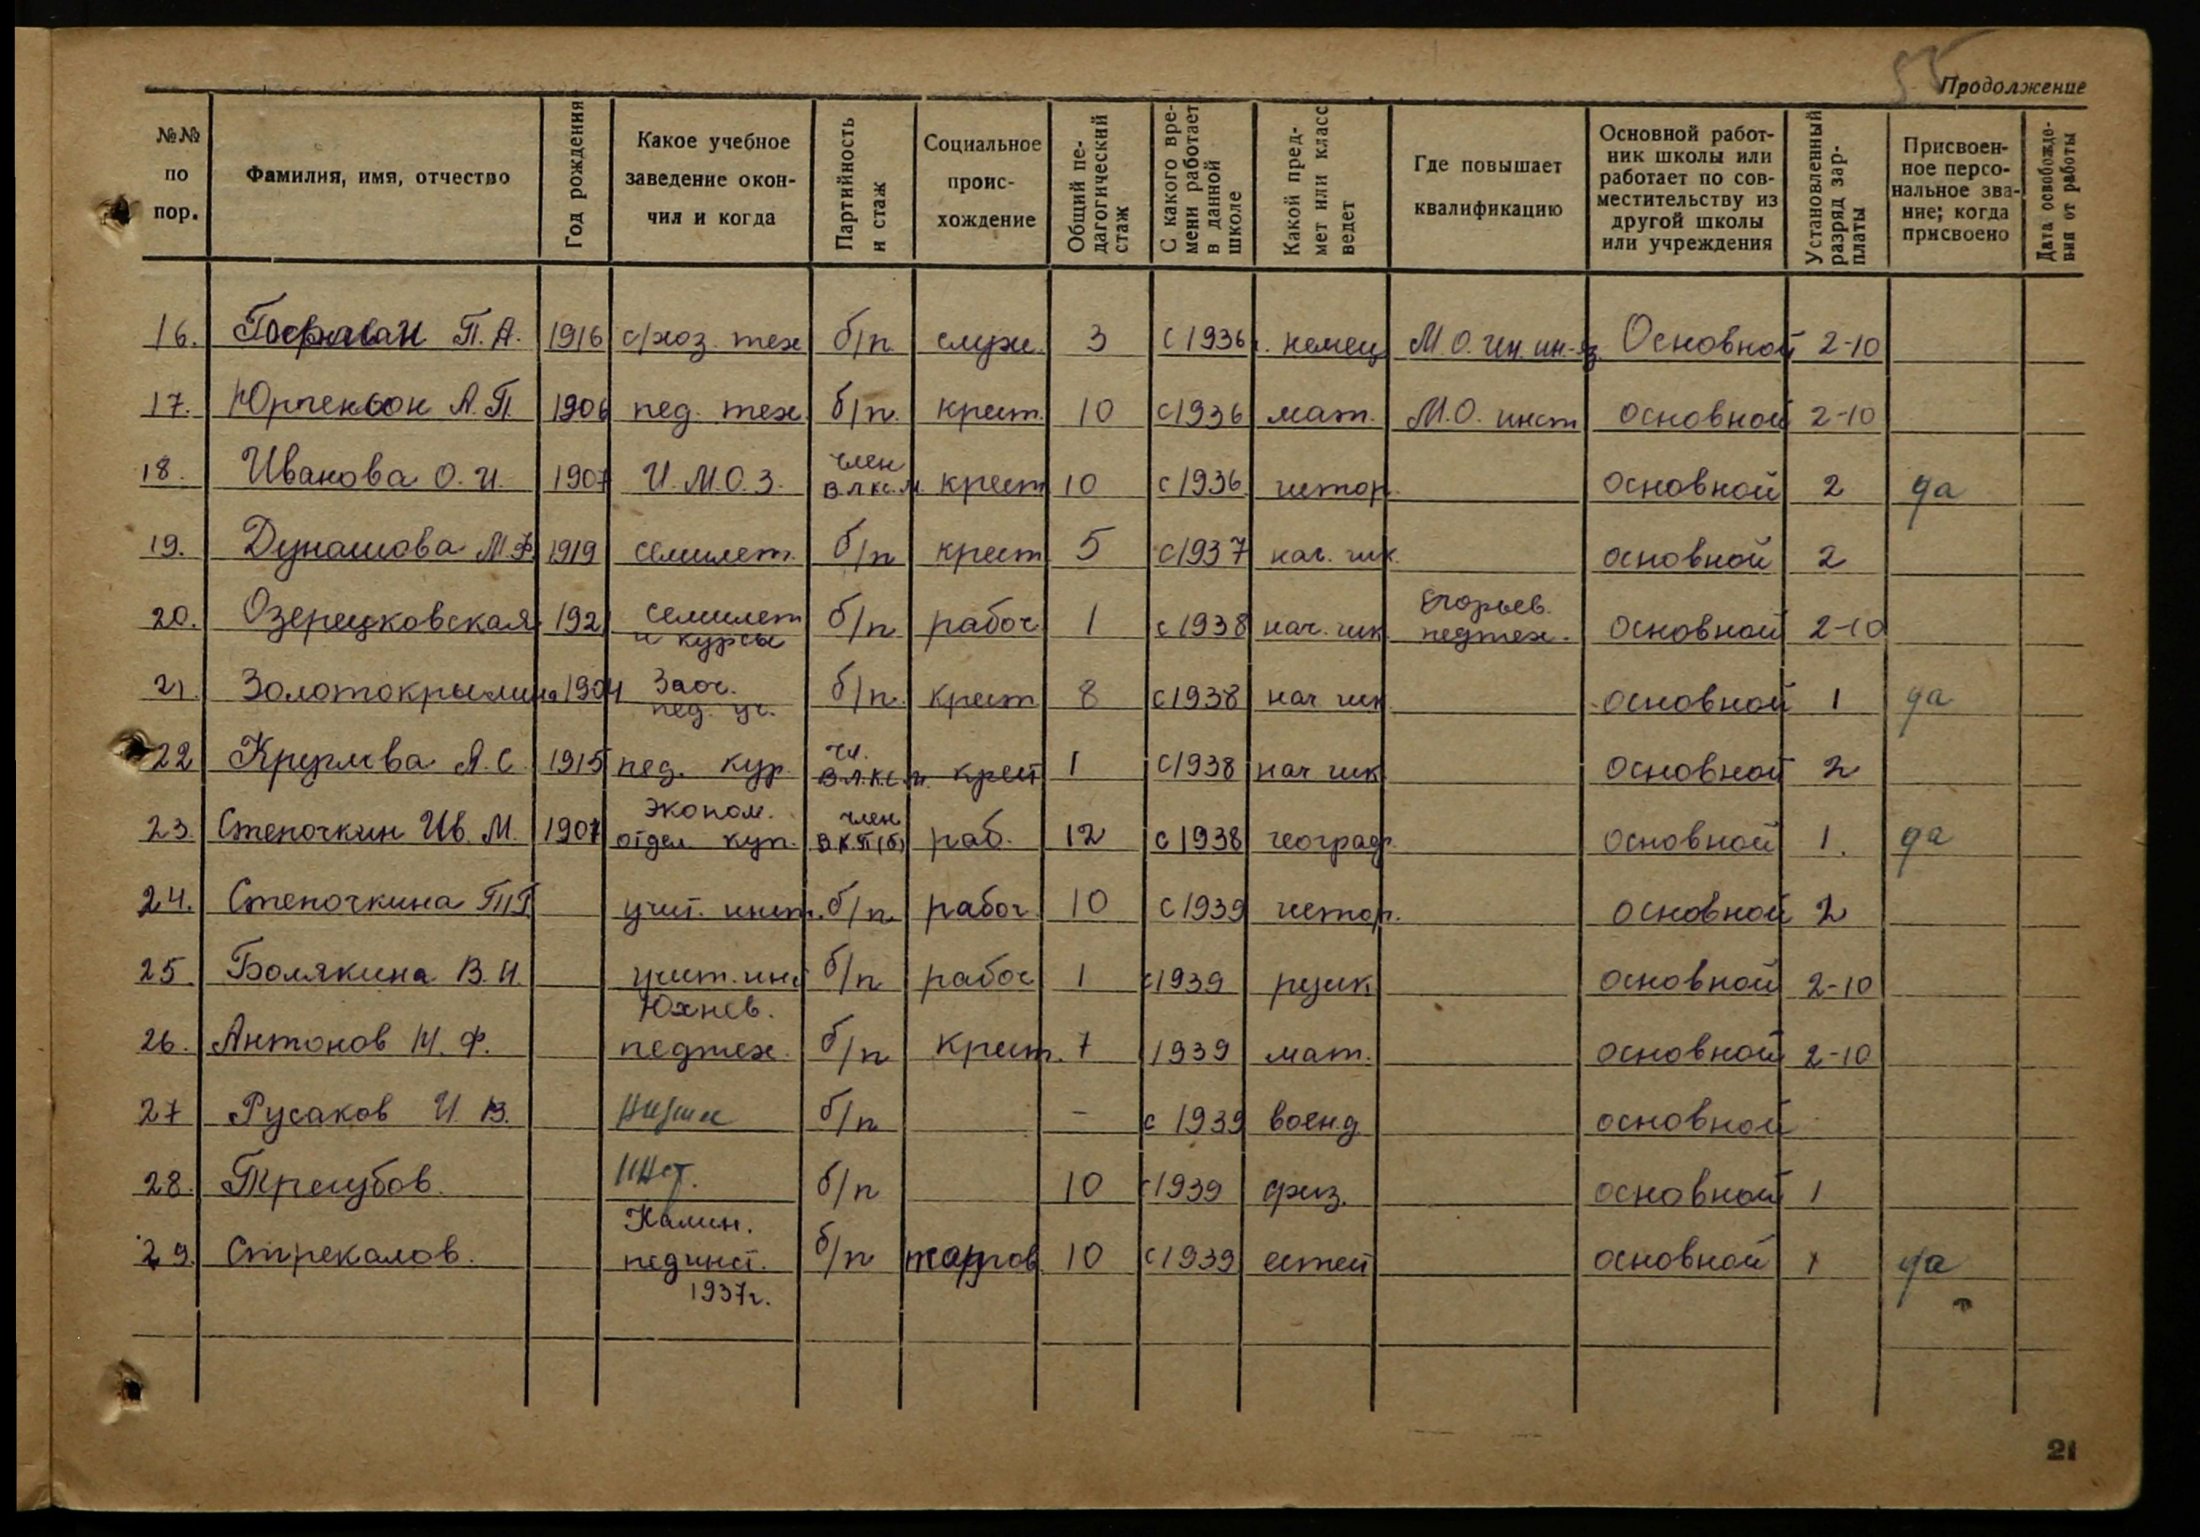 55
Продолжение
№№ по пор. Фамилия, имя, отчество Год рождения Какое учебное заведение окончил и когда Партийность и стаж Социальное происхождение Общий педагогический стаж С какого времени работает в данной школе Какой предмет или класс ведет Где повышает квалификацию Основной работник школы или работает по совместительству из другой школы или учреждения Установленный разряд зарплаты Присвоенное персональное звание; когда присвоено Дата освобождения от работы
16. П.А. 1916 с/хоз. тех б/п служ. 3 с 1936г. немец М.О. ин. ин-яз. Основной 2-10
17. А.П. 1906 пед. тех. б/п. крест. 10 с 1936 мат. М.О. инст основной 2-10
18. Иванова О.И. 1907 И.М.О.З. член В.Л.К.С.М крест 10 с 1936 истор. основной 2 да
19. Дунашова М.Ф. 1919 семилет. б/п крест 5 с 1937 нач. шк. основной 2
20. Озерецковская 1921 семилет и курсы б/п рабоч 1 с 1938 нач. шк Егорьев. педтех. основной 2-10
21. Золотокрылина 1904 Заоч. пед. уч. б/п. крест 8 с 1938 нач шк основной 1 да
22 Круглова А.С. 1915 пед. кур. чл. В.Л.К.С.М. крест 1 с 1938 нач шк основной 2
23. Степочкин Ив. М. 1907 эконом. отдел куп. член ВКП(б) раб. 12 с 1938 географ. основной 1. да
24. Степочкина П.Г. учит. инст. б/п. рабоч 10 с 1939 истор. основной 2
25. Болякина В.И. учит. инс б/п рабоч 1 с 1939 р.узик основной 2-10
26. Антонов М.Ф. Юхнов. педтех. б/п крест. 7 1939 мат. основной 2-10
27 Русаков И.В. б/п - с 1939 воен.д основной
28. Трегубов. Инст. б/п 10 с 1939 физ. основной 1
29. Стрекалов. Калин. пединст. 1937г. б/п 10 с 1939 естест основной 1 да
21